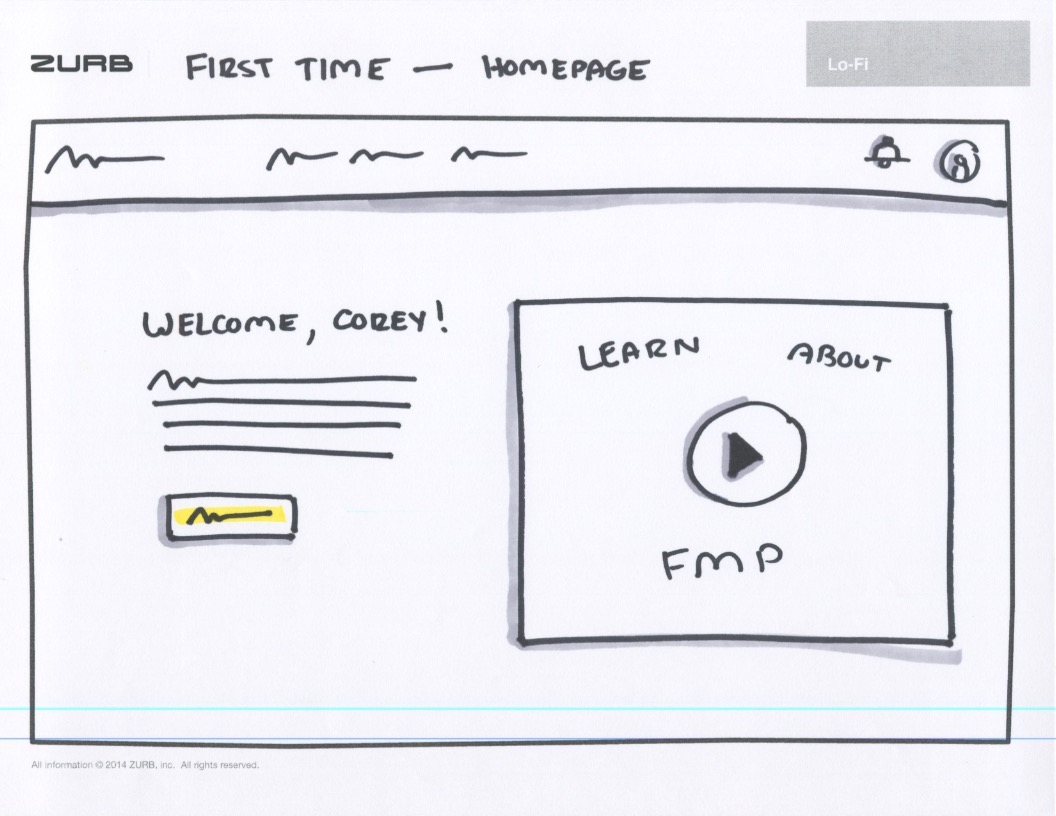 ZURB FIRST TIME — HOMEPAGE
Lo-Fi
WELCOME, COREY!
LEARN ABOUT
FMP
All information © 2014 ZURB, inc. All rights reserved.